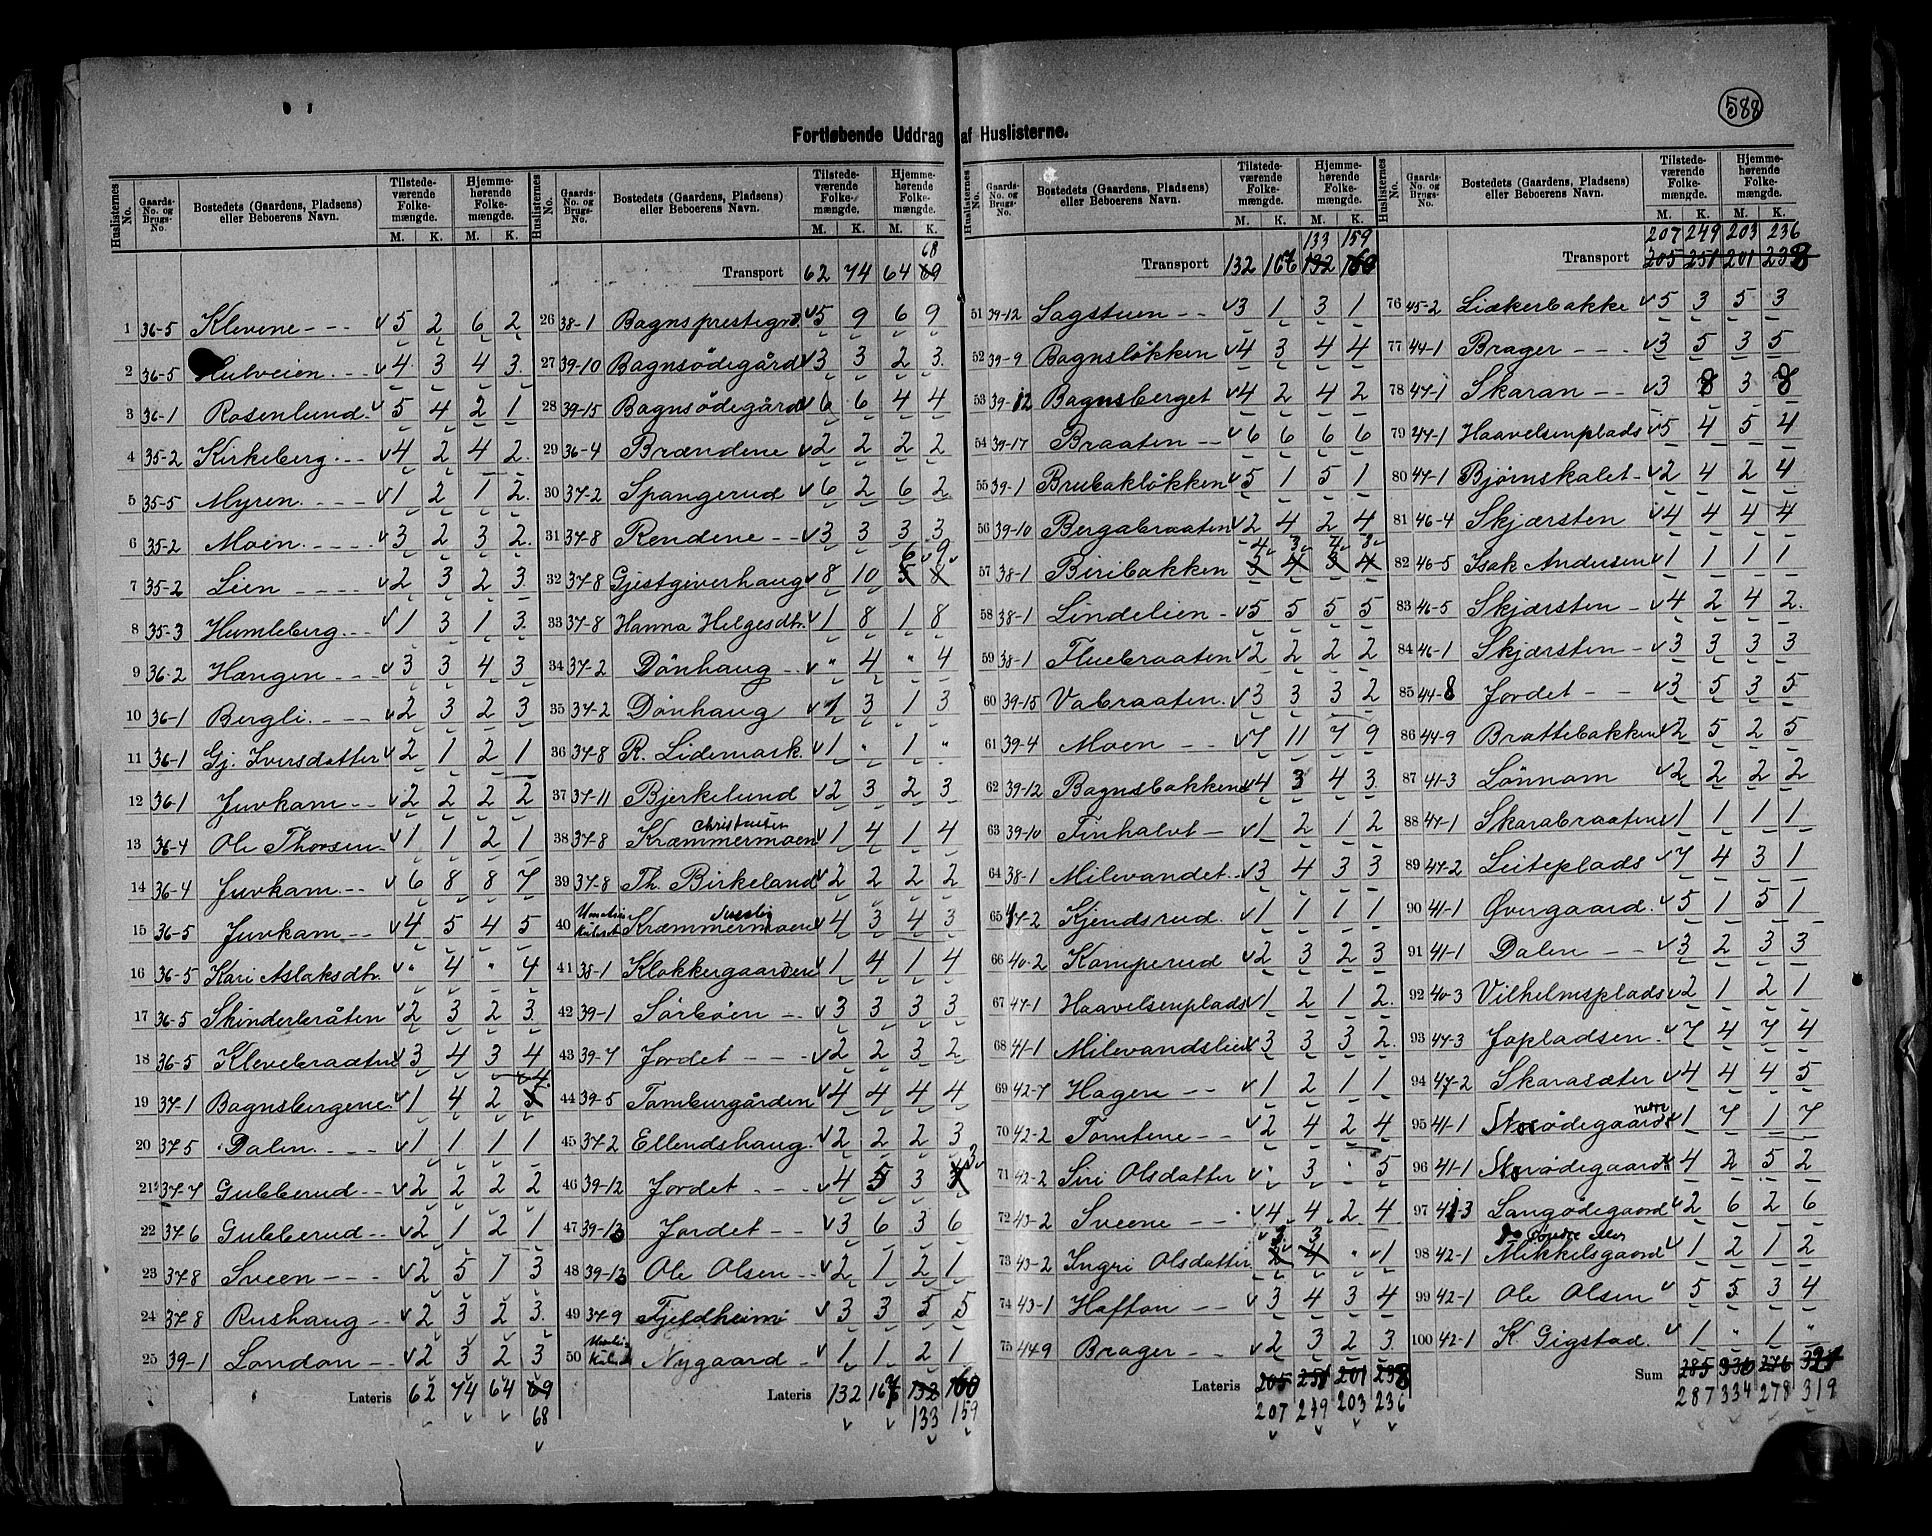 588
Fortløbende Uddrag af Huslisterne.
Huslisternes No. Gaards-No. og Brugs-No. Bostedets (Gaardens, Pladsens) eller Beboerens Navn. Tilstedeværende Folkemængde. M. K. Hjemmehørende Folkemængde. M. K.
1 36-5 Klevene 5 2 6 2
2 36-5 Hulveien 4 3 4 3
3 36-1 Rosenlund 5 4 2 1
4 35-2 Kirkeberg 4 2 4 2
5 35-5 Myren 1 2 1 2
6 35-2 Moen 3 2 3 2
7 35-2 Lien 2 3 2 3
8 35-3 Humleberg 1 3 1 3
9 36-2 Hængen 3 3 4 3
10 36-1 Bergli 2 3 2 3
11 36-1 Gj. Iversdatter 2 1 2 1
12 36-1 Juvkam 2 2 2 2
13 36-4 Ole Thorsen 1 1 2 1
14 36-4 Juvkam 6 8 8 7
15 36-5 Juvkam 4 5 4 5
16 36-5 Kari Aslaksdtr. " 4 " 4
17 36-5 Skinderbråten 2 3 2 3
18 36-5 Klevebraaten 3 4 3 4
19 37-1 Bagnsbergene 1 4 2 4
20 37-5 Dalen 1 1 1 1
21 37-7 Gubberud 2 2 2 2
22 37-6 Gubberud 2 1 2 1
23 37-8 Sveen 2 5 1 3
24 37-8 Rushaug 2 3 2 3
25 39-1 London 2 3 2 3
Lateris 62 74 64 69
68
Huslisternes No. Gaards-No. og Brugs-No. Bostedets (Gaardens, Pladsens) eller Beboerens Navn. Tilstedeværende Folkemængde. M. K. Hjemmehørende Folkemængde. M. K.
68
Transport 62 74 64 69
26 38-1 Bagnsprestegrd. 5 9 6 9
27 39-10 Bagnsödegård 3 3 2 3
28 39-15 Bagnsödegård 6 6 4 4
29 36-4 Brændene 2 2 2 2
30 37-2 Spangerud 6 2 6 2
31 37-8 Rendene 3 3 3 3
6 9
32 37-8 Gjestgiverhaug 8 10 5 8
33 37-8 Hanna Helgesdtr. 1 8 1 8
34 37-2 Dönhaug " 4 " 4
35 37-2 Dönhaug 1 3 1 3
36 37-8 R. Lidemark 1 " 1 "
37 37-11 Bjerkelund 2 3 2 3
38 37-8 Kræmmermoen 1 4 1 4
39 37-8 Th. Birkeland 2 2 2 2
40 Kræmmermoen 4 3 4 3
41 38-1 Klokkergaarden 1 4 1 4
42 39-1 Sörböen 3 3 3 3
43 39-7 Jordet 2 2 3 2
44 39-5 Tamburgården 4 4 4 4
45 37-2 Ellendshaug 2 2 2 3
3
46 39-12 Jordet 4 5 3
47 39-13 Jordet 3 6 3 6
48 39-13 Ole Olsen 2 1 2 1
49 37-9 Fjeldheim 3 3 5 5
50 Nygaard 1 1 2 1
Lateris 132 167 132 160
133 159
Huslisternes No. Gaards-No. og Brugs-No. Bostedets (Gaardens, Pladsens) eller Beboerens Navn. Tilstedeværende Folkemængde. M. K. Hjemmehørende Folkemængde. M. K.
133 159
Transport 132 167 132 160
51 39-12 Sagstuen 3 1 3 1
52 39-9 Bagnsløkken 4 3 4 4
53 39-12 Bagnsberget 4 2 4 2
54 39-17 Braaten 6 6 6 6
55 39-1 Brubakløkken 5 1 5 1
56 39-10 Bergabraaten 2 4 2 4
4 3 4 3
57 38-1 Biribakken 3 4 3 4
58 38-1 Lindelien 5 5 5 5
59 38-1 Fluebraaten 2 2 2 2
60 39-15 Vabraaten 3 3 3 2
61 39-4 Moen 7 11 7 9
62 39-12 Bagnsbakkene 4 3 4 3
63 39-10 Finhalvt 1 2 1 2
64 38-1 Milevandet 3 4 3 3
65 47-2 Kjendsrud 1 1 1 1
66 40-2 Kamperud 2 3 2 3
67 47-1 Haavelsenplads 1 2 1 2
68 41-1 Milevandslien 3 3 3 2
69 42-7 Hagen 1 2 1 1
70 42-2 Tomtene 2 4 2 4
71 42-2 Siri Olsdatter " 3 " 5
72 43-2 Sveene 4 4 2 4
3 3
73 43-2 Ingri Olsdatter 2 4 " 1
74 43-1 Hafton 3 4 3 4
75 44-9 Brager 2 3 2 3
Lateris 205 251 201 238
207 249 203 236
Huslisternes No. Gaards-No. og Brugs-No. Bostedets (Gaardens, Pladsens) eller Beboerens Navn. Tilstedeværende Folkemængde. M. K. Hjemmehørende Folkemængde. M. K.
207 249 203 236
Transport 205 251 201 238
76 45-2 Liækerbakke 5 3 5 3
77 44-1 Brager 3 5 3 5
78 47-1 Skaran 3 8 3 8
79 47-1 Haavelsenplads 5 4 5 4
80 47-1 Bjørnskalet 2 4 2 4
81 46-4 Skjærsten 4 4 4 4
82 46-5 Isak Andersen 1 1 1 1
83 46-5 Skjærsten 4 2 4 2
84 46-1 Skjærsten 3 3 3 3
85 44-8 Jordet 3 5 3 5
86 44-9 Brattebakken 2 5 2 5
87 41-3 Lönnam 2 2 2 2
88 47-1 Skarabraaten 1 1 1 1
89 47-2 Leiteplads 7 4 3 1
90 41-1 Øvergaard 5 1 5 1
91 41-1 Dalen 3 2 3 3
92 40-3 Vilhelmsplads 2 1 2 1
93 47-3 Jopladsen 7 4 7 4
94 47-2 Skarasæter 4 4 4 5
95 41-1 Storødegaard nedre 1 7 1 7
96 41-1 Storødegaard 4 2 5 2
97 41-3 Langødegaard 2 6 2 6
98 42-1 Mikkelsgaard 1 2 1 2
99 42-1 Ole Olsen 5 5 3 4
100 42-1 K. Gigstad 1 " 1 "
Sum 285 336 276 321
287 334 278 319